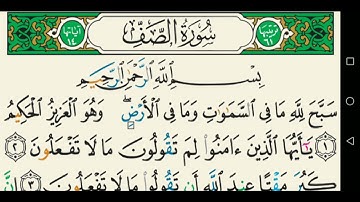 ترتيبها ٦١ سُورَةُ الصَّفِّ آياتها ١٤
بِسْمِ اللَّهِ الرَّحْمَٰنِ الرَّحِيمِ
سَبَّحَ لِلَّهِ مَا فِى السَّمَٰوَٰتِ وَمَا فِى الْأَرْضِ ۖ وَهُوَ الْعَزِيزُ الْحَكِيمُ
١ يَٰٓأَيُّهَا الَّذِينَ ءَامَنُوا۟ لِمَ تَقُولُونَ مَا لَا تَفْعَلُونَ ٢
كَبُرَ مَقْتًا عِندَ اللَّهِ أَن تَقُولُوا۟ مَا لَا تَفْعَلُونَ ٣ إِنَّ